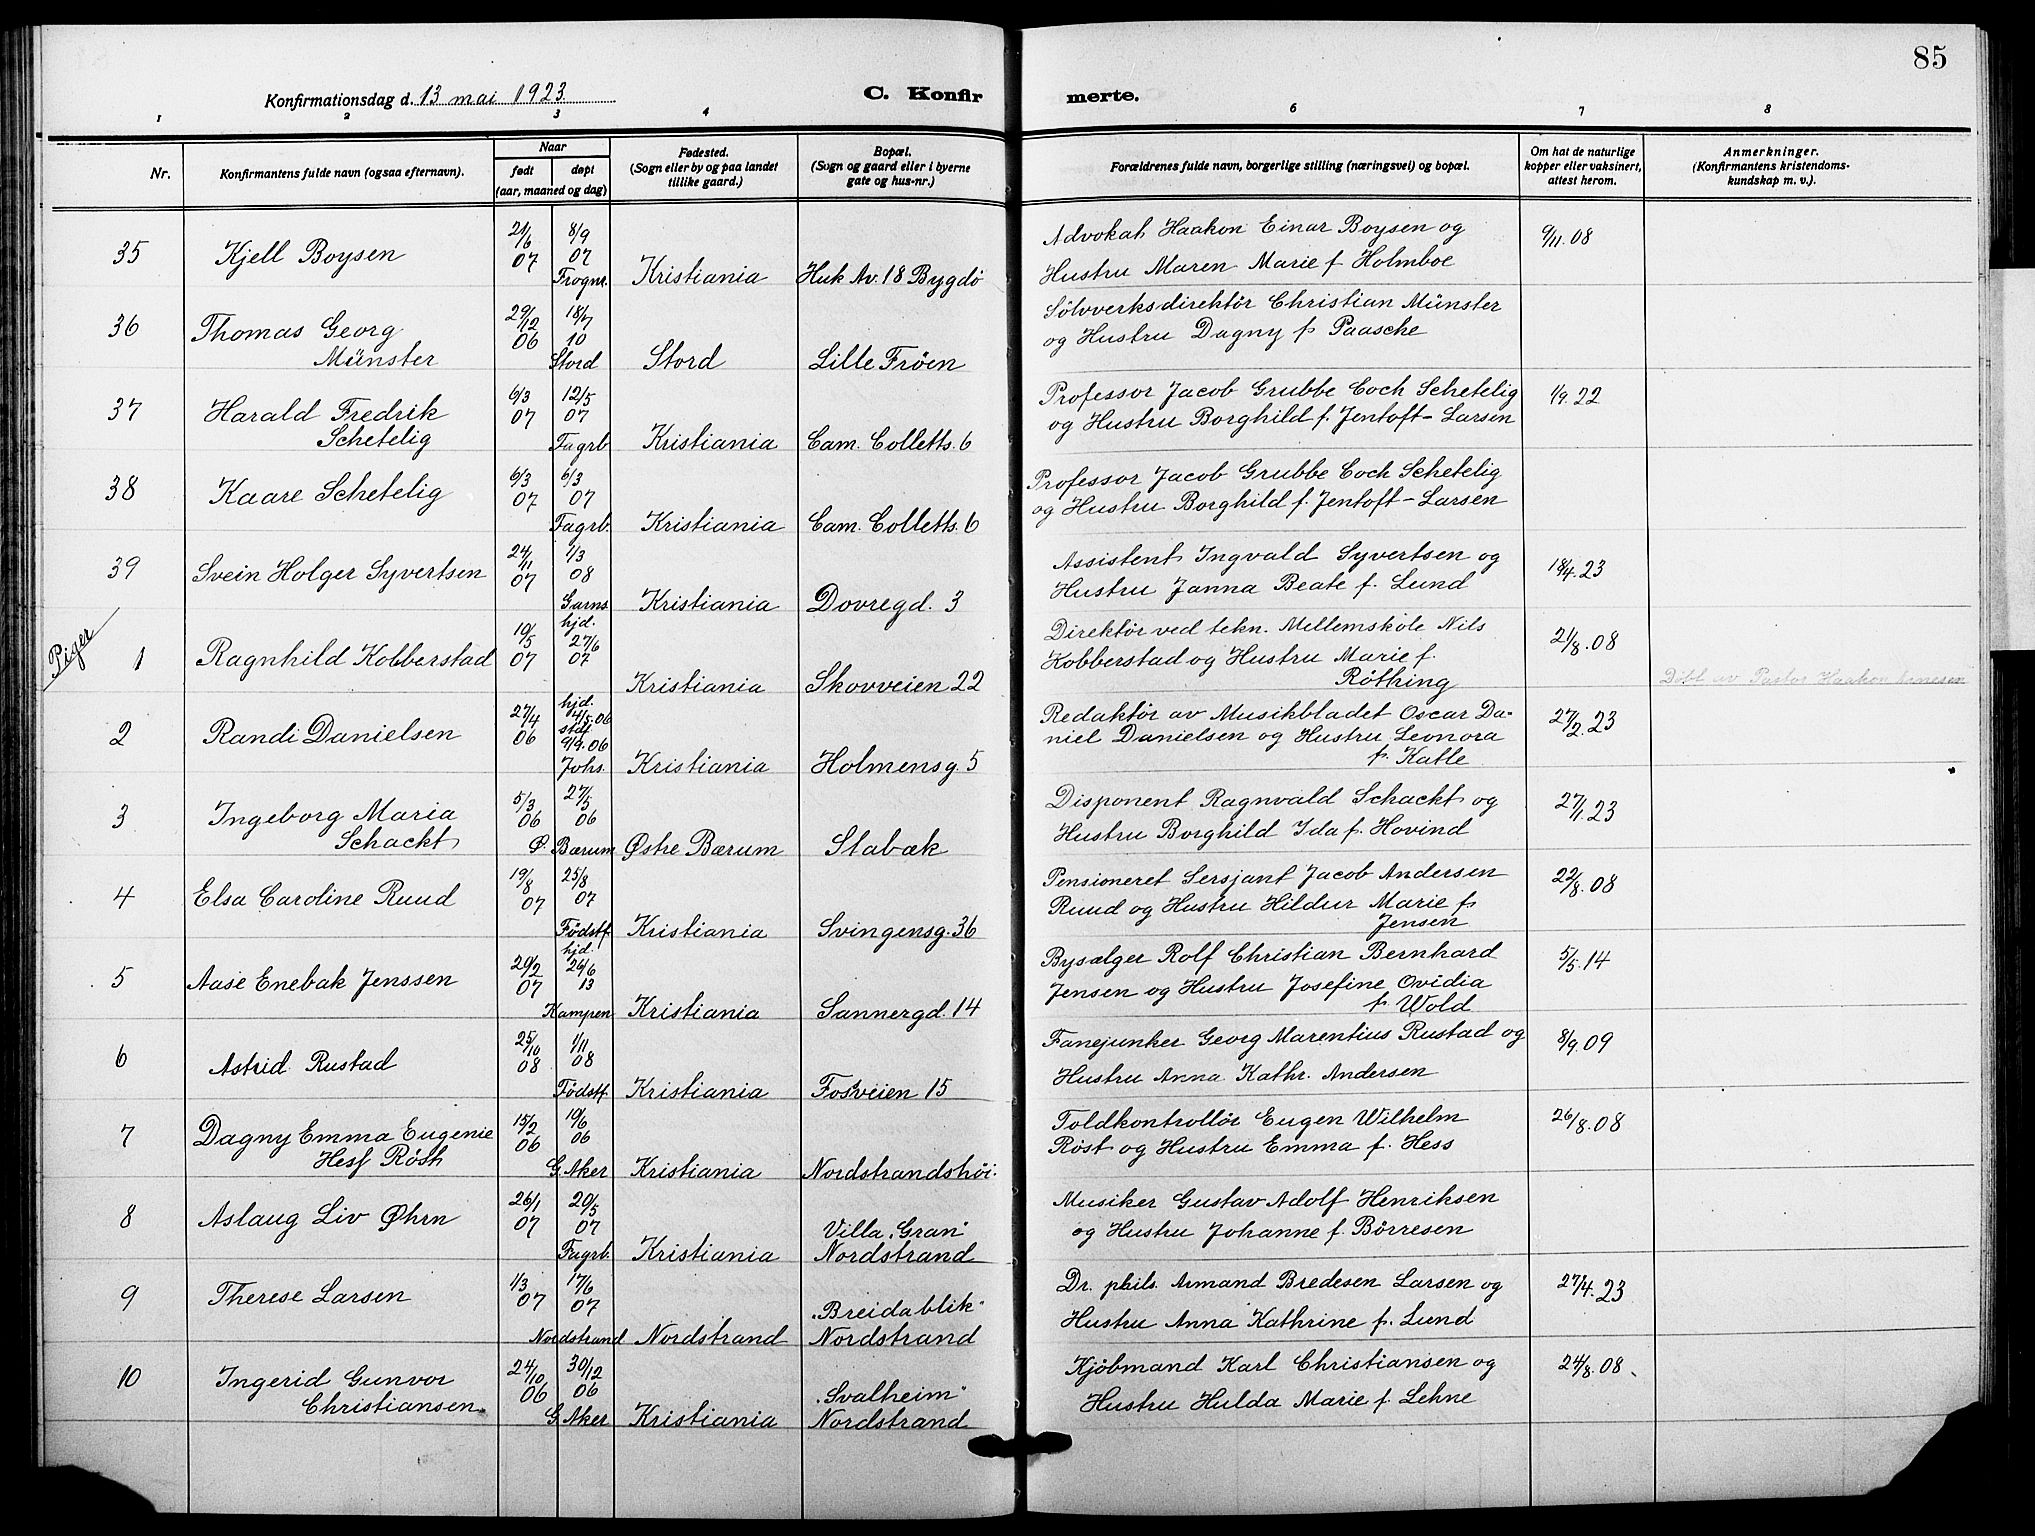 85
Konfirmationsdag d. 13 mai 1923
C. Konfir
merte.
1 2 3 4 6 7 8
Nr.
Konfirmantens fulde navn (ogsaa efternavn).
Naar
født
døpt
(aar, maaned og dag)
Fødested.
(Sogn eller by og paa landet
tillike gaard.)
Bopæl.
(Sogn og gaard eller i byerne
gate og hus-nr.)
Forældrenes fulde navn, borgerlige stilling (næringsvei) og bopæl.
Om hat de naturlige
kopper eller vaksinert,
attest herom.
Anmerkninger.
(Konfirmantens kristendoms-
kundskap m. v.).
35 Kjell Boysen 21/6 07 8/9 07 Frogn. Kristiania Huk Av. 18 Bygdö
Advokat Haakon Einar Boysen og
Hustru Maren Marie f Holmboe
9/11.08
36 Thomas Georg
Münster
29/12 06 18/7 10 Stord Stord Lille Fröen
Sölvverksdirektör Christian Münster
og Hustru Dagny f. Paasche
37 Harald Fredrik
Schetelig
6/3 07 12/5 07 Fagrb Kristiania Cam. Colletts. 6
Professor Jacob Grubbe Coch Schetelig
og Hustru Borghild f. Jentoft-Larsen
1/9.22
38 Kaare Schetelig 6/3 07 6/3 07 Fagrb. Kristiania Cam. Colletts. 6
Professor Jacob Grubbe Coch Schetelig
og Hustru Borghild f. Jentoft-Larsen
39 Svein Holger Syvertsen 24/11 07 1/3 08 Garns. Kristiania Dovregd. 3
Assistent Ingvald Syvertsen og
Hustru Janna Beate f. Lund
18/4.23
Piger
1 Ragnhild Kobberstad 19/5 07 hjd. 27/6 07 Kristiania Skovveien 22
Direktör ved tekn. Mellemskole Nils
Kobberstad og Hustru Marie f.
Röthing
21/8.08
Döbt av Pastor Haakon
2 Randi Danielsen 27/4 06 hjd. 14/5.06 stdf. 9/9.06 Johs. Kristiania Holmensg. 5
Redaktör av Musikbladet Oscar Da-
niel Danielsen og Hustru Leonora
f. Katle
27/2.23
3 Ingeborg Maria
Schackt
5/3 06 27/5 06 Ø. Bærum Østre Bærum Stabæk
Disponent Ragnvald Schackt og
Hustru Borghild Ida f. Hovind
27/1.23
4 Elsa Caroline Ruud 19/8 07 25/8 07 Födstf. Kristiania Svingensg. 36
Pensioneret Sersjant Jacob Andersen
Ruud og Hustru Hildur Marie f.
Jensen
22/8.08
5 Aase Enebak Jenssen 20/2 07 hjd. 26/6 13 Kampen Kristiania Sannergd. 14
Bysælger Rolf Christian Bernhard
Jensen og Hustru Josefine Ovidia
f. Wold
5/5.14
6 Astrid Rustad 25/10 08 1/11 08 Födstf. Kristiania Fossveien 15
Fanejunker Georg Marentius Rustad og
Hustru Anna Kathr. Andersen
8/9.09
7 Dagny Emma Eugenie
Hess Röst
15/2 06 10/6 06 G. Aker Kristiania Nordstrandshöi.
Toldkontrollör Eugen Wilhelm
Röst og Hustru Emma f. Hess
26/8.08
8 Aslaug Liv Øhrn 26/1 07 20/5 07 Fagrb. Kristiania Villa „Gran"
Nordstrand
Musiker Gustav Adolf Henriksen
og Hustru Johanne f. Börresen
9 Therese Larsen 1/3 07 17/6 07 Nordstrand Nordstrand „Breidablik"
Nordstrand
Dr. phils. Armand Bredesen Larsen og
Hustru Anna Kathrine f. Lund
27/4.23
10 Ingerid Gunvor
Christiansen
24/10 06 30/12 06 G. Aker Kristiania „Svalheim"
Nordstrand
Kjöbmand Karl Christiansen og
Hustru Hulda Marie f. Lehne
24/8.08